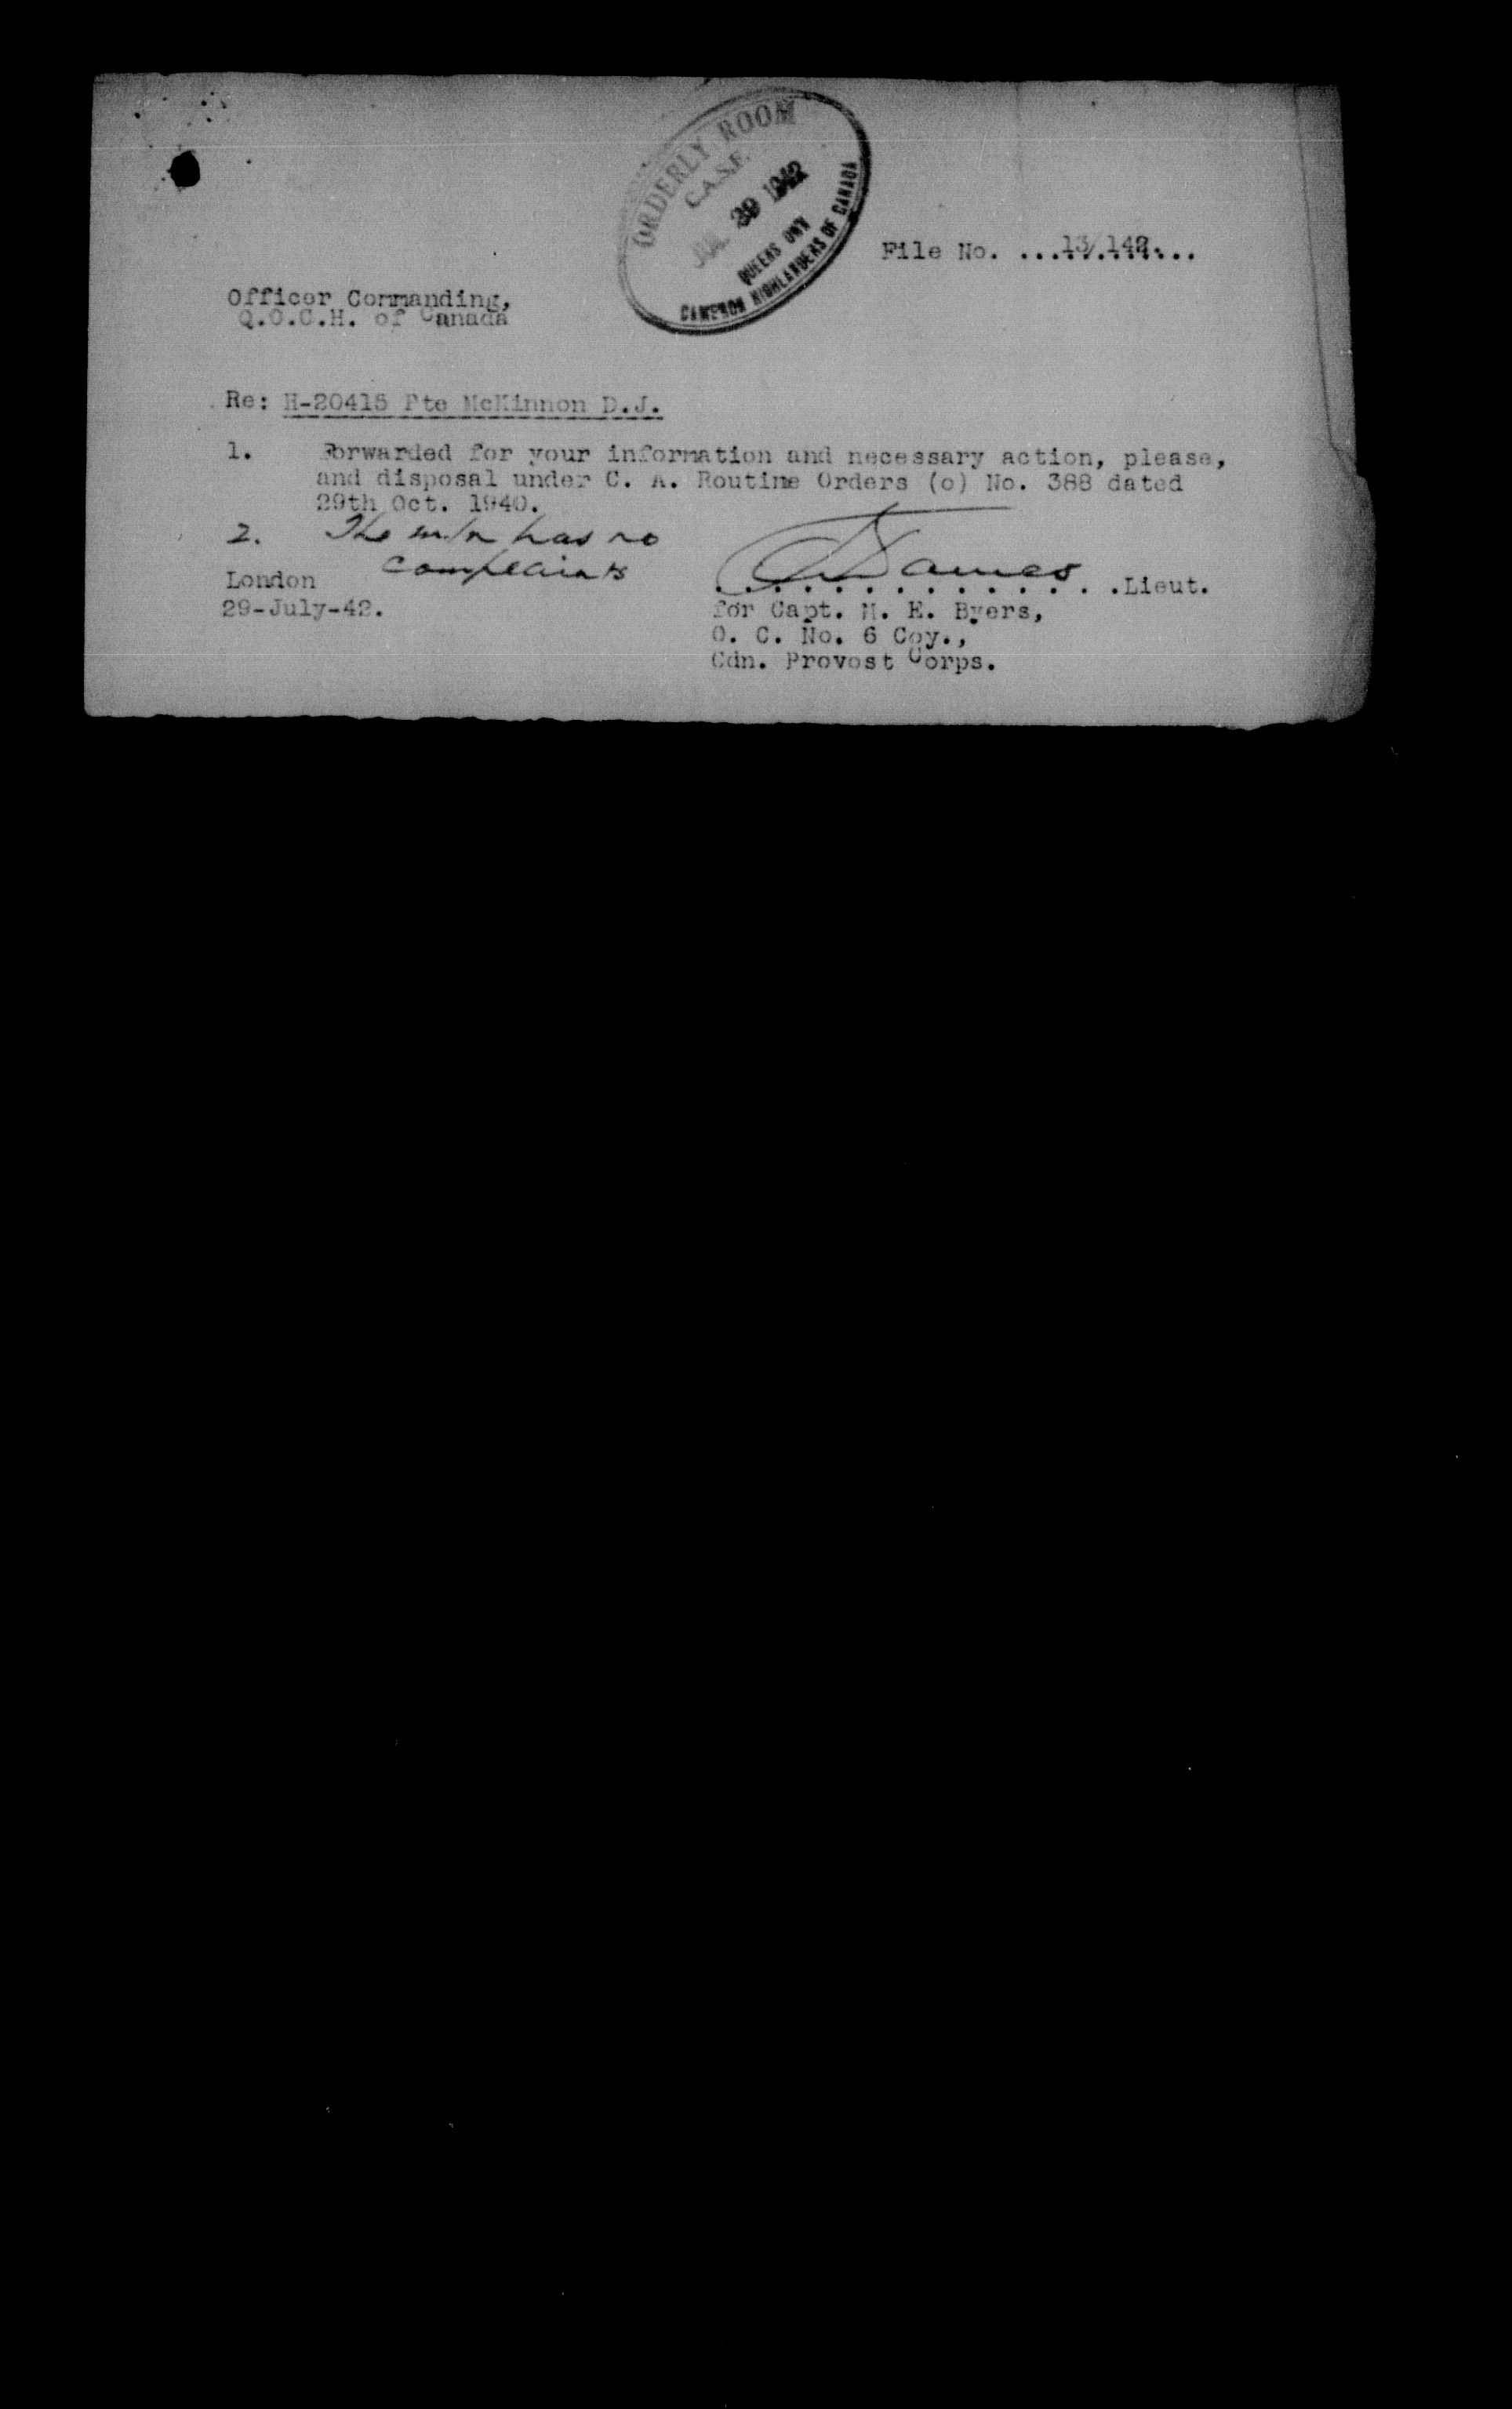 ORDERLY ROOM
C.A.S.F.
JUL 29 1942
QUEENS OWN
CAMERON HIGHLANDERS OF CANADA
File No. ....13/142....
Officer Commanding,
Q.O.C.H. of Canada
Re: H-20415 Pte McKinnon D.J.
1. Forwarded for your information and necessary action, please,
and disposal under C. A. Routine Orders (o) No. 388 dated
29th Oct. 1940.
2. The m/n has no
complaints
London
29-July-42.
James
..............Lieut.
for Capt. M. E. Byers,
O. C. No. 6 Coy.,
Cdn. Provost Corps.